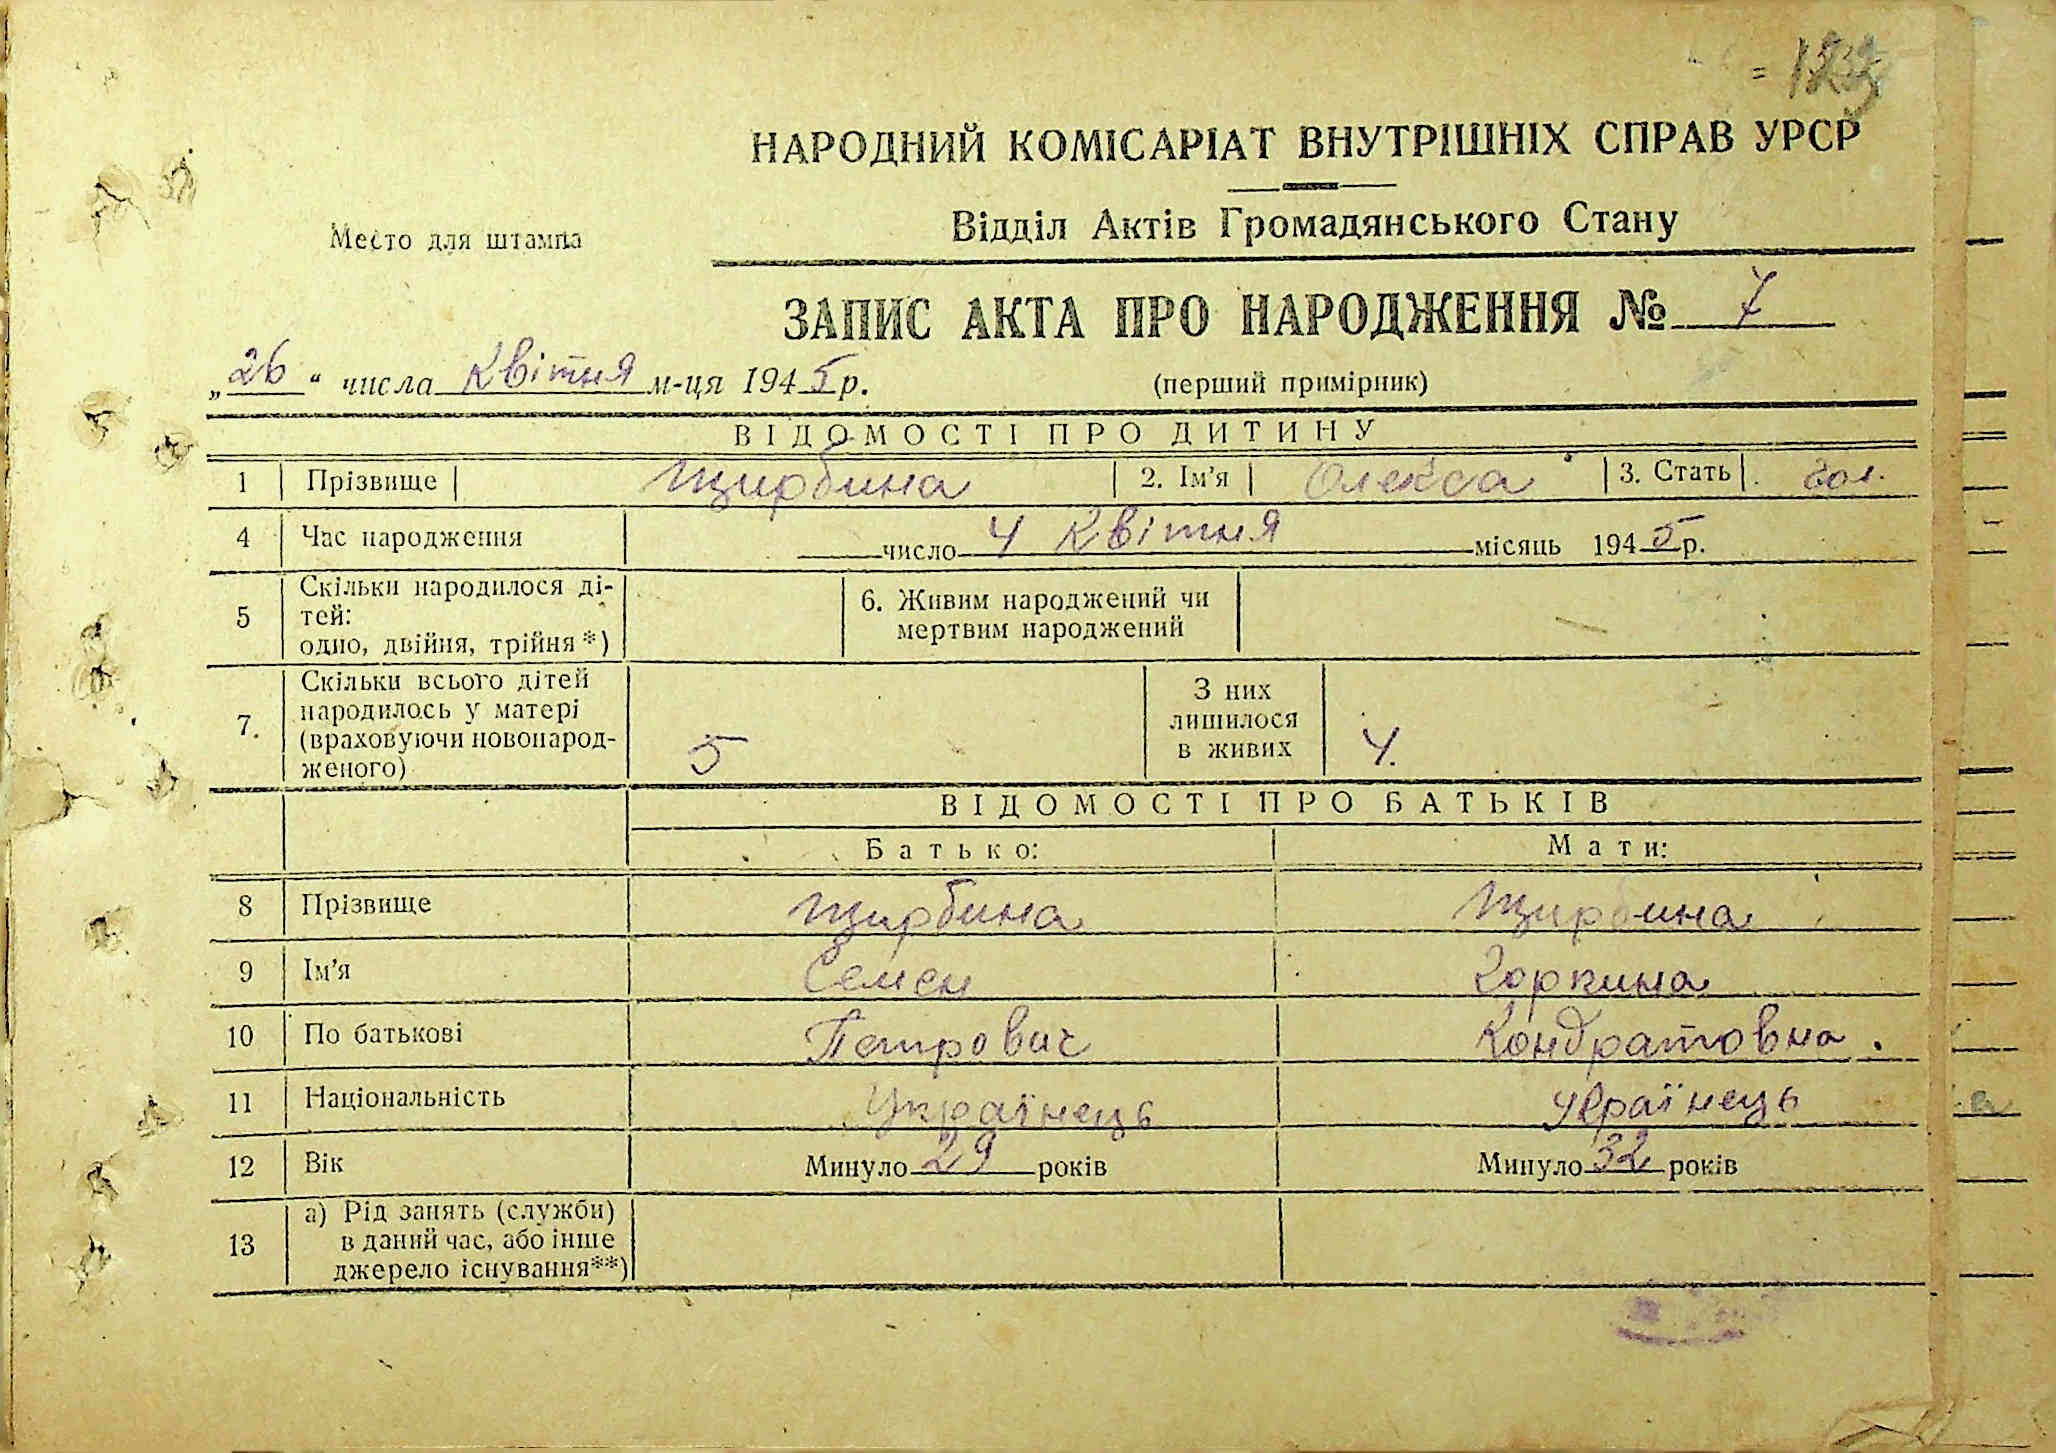 НАРОДНИЙ КОМІСАРІАТ ВНУТРІШНІХ СПРАВ УРСР
Место для штампа
Відділ Актів Громадянського Стану
ЗАПИС АКТА ПРО НАРОДЖЕННЯ № 7
„26“ числа Квітня м-ця 1945 р.
(перший примірник)
ВІДОМОСТІ ПРО ДИТИНУ
1 Прізвище Щирбина 2. Ім’я Олекса 3. Стать чол.
4 Час народження число 4 Квітня місяць 1945 р.
5 Скільки народилося ді-
тей:
одно, двійня, трійня *)
6. Живим народжений чи
мертвим народжений
7. Скільки всього дітей
народилось у матері
(враховуючи новонарод-
женого)
5
З них
лишилося
в живих
4.
ВІДОМОСТІ ПРО БАТЬКІВ
Батько: Мати:
8 Прізвище Щирбина Щирбина
9 Ім’я Семен Горпина
10 По батькові Петрович Кондратовна.
11 Національність Українець Українець
12 Вік Минуло 29 років Минуло 32 років
13 а) Рід занять (служби)
в даний час, або інше
джерело існування**)